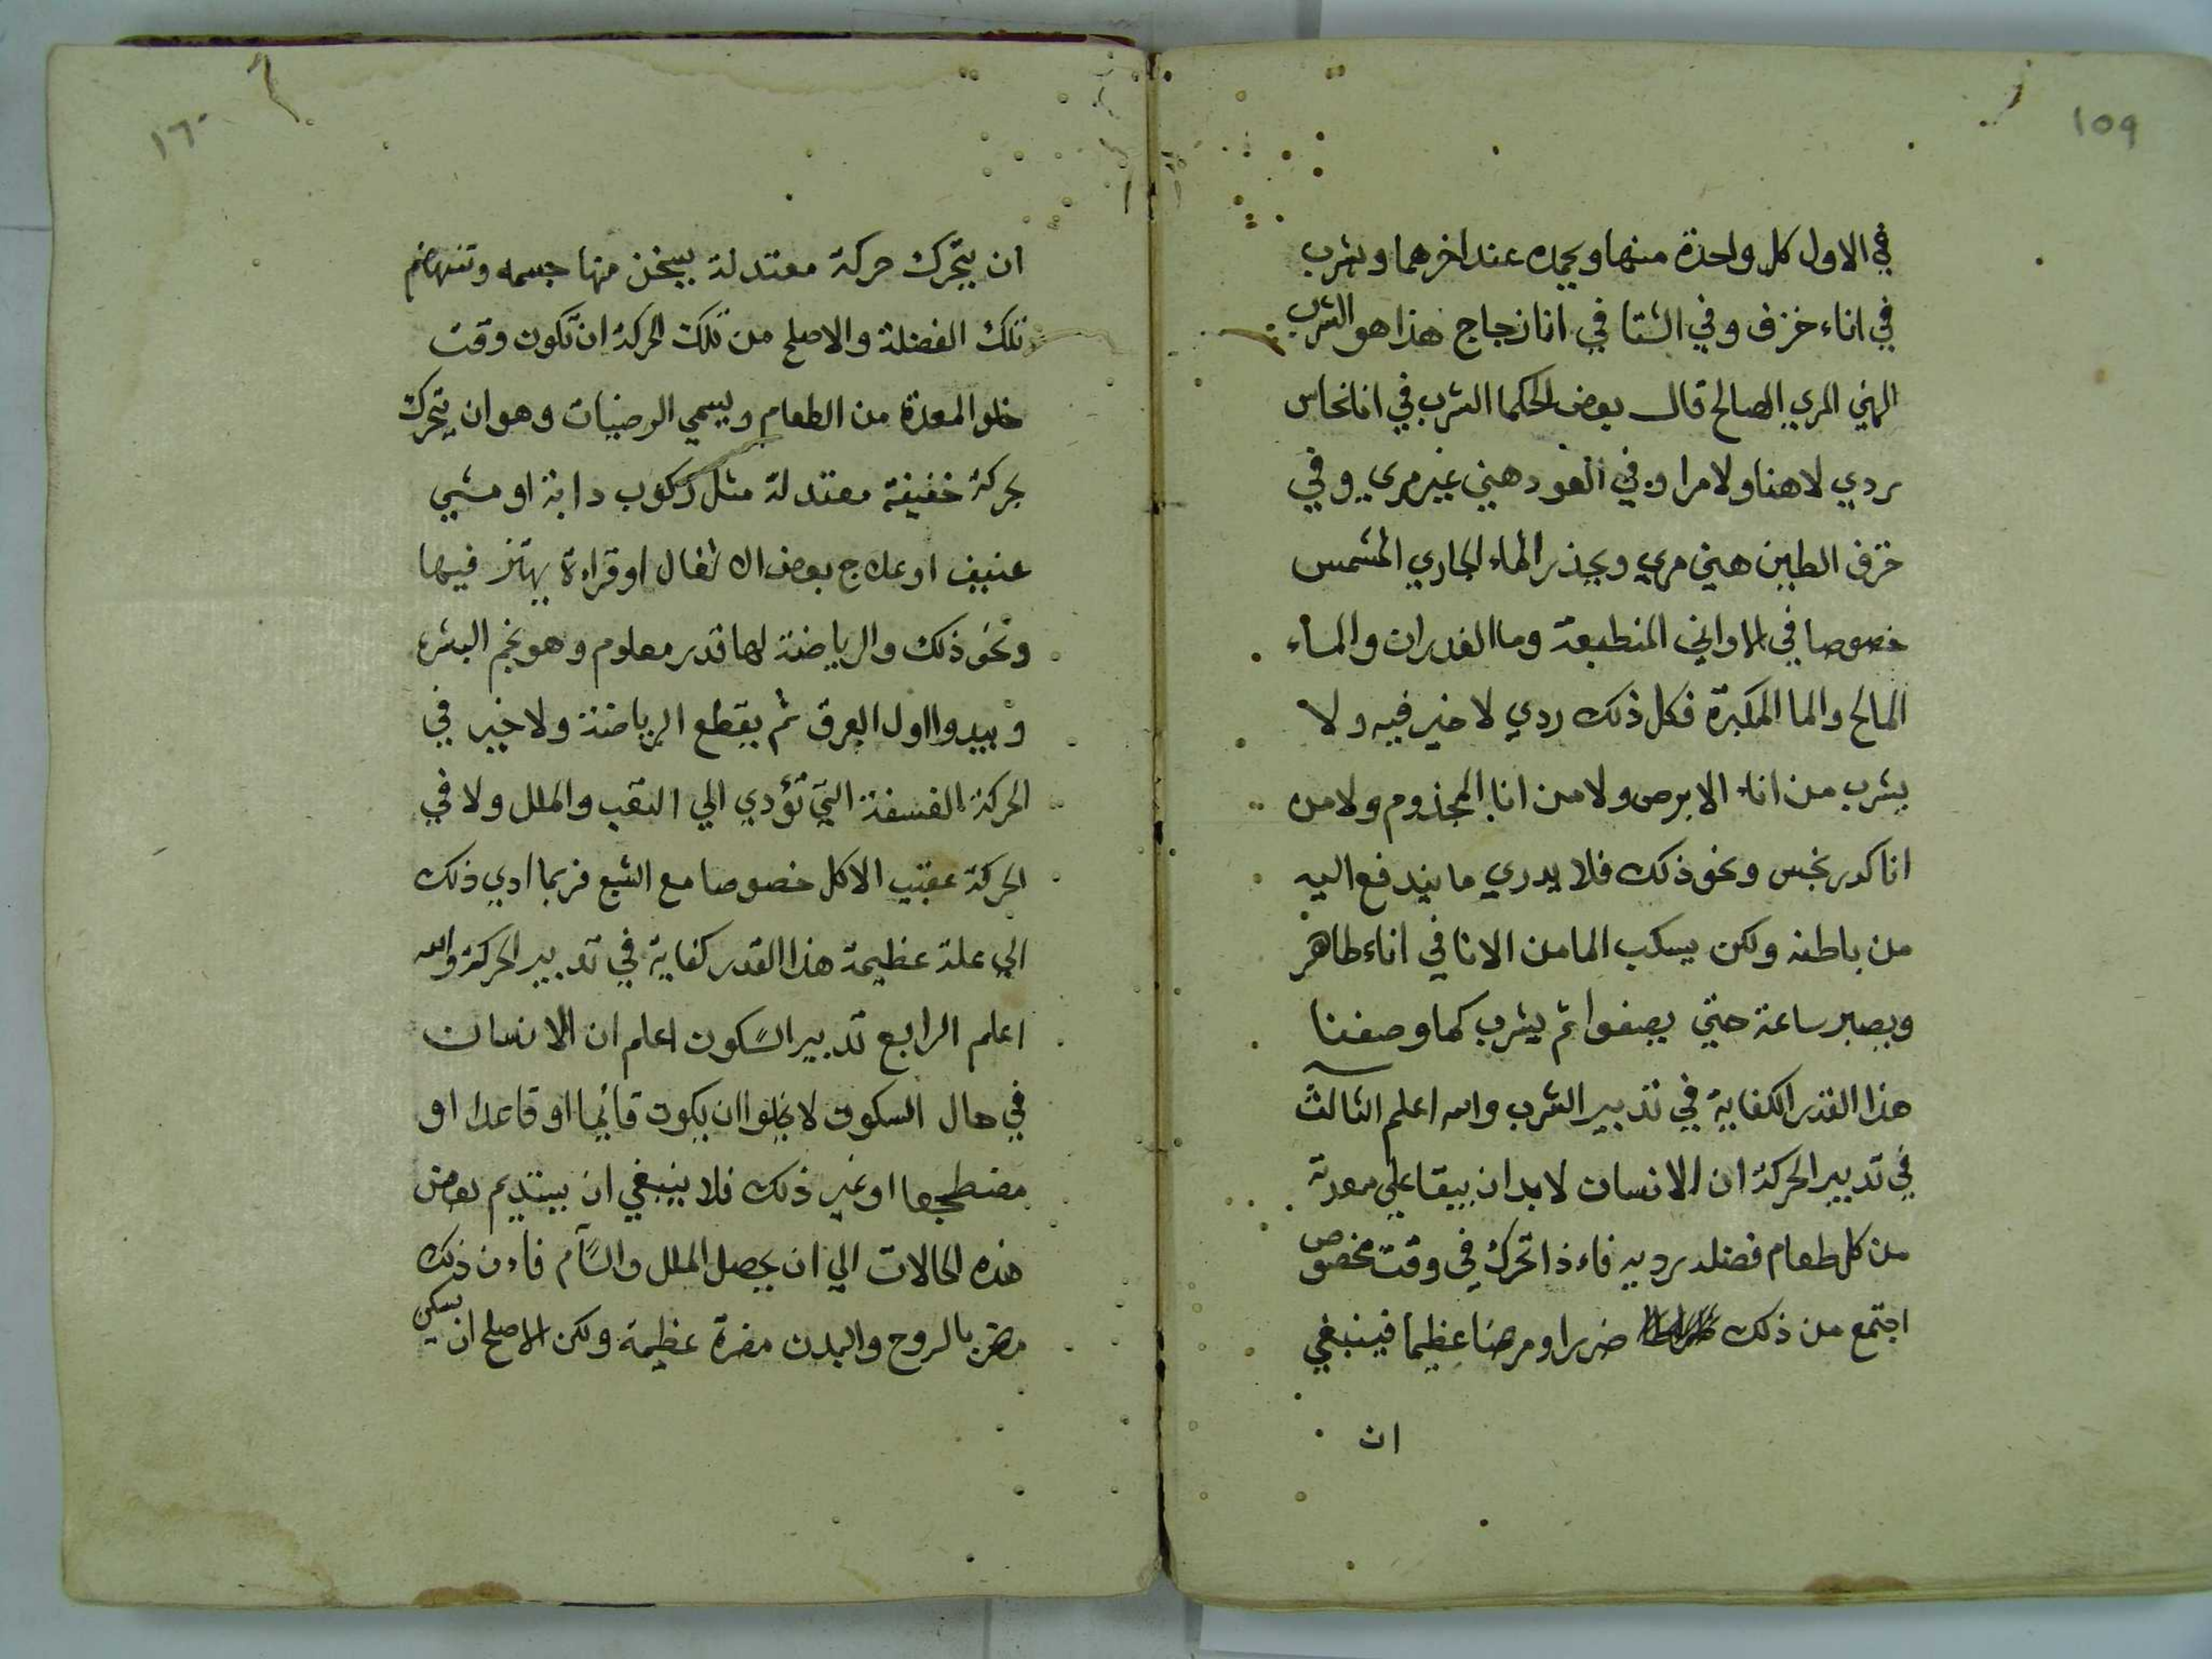 ١٥٩
في الاول كل واحدة منها ويحمده عند اخرهما ويشرب
في اناء خزف وفي الشتا في انا زجاج هذا هو الشرب
الهني المري الصالح قال بعض الحكما الشرب في انا نحاس
ردي لا هنا ولا مرا وفي العود هني غير مري وفي
خزف الطين هني مري ويحذر الماء الجاري المشمس
خصوصا في الاواني المنطبعة وما الغدران والماء
المالح والما المكبرة فكل ذلك ردي لا خير فيه ولا
يشرب من اناء الابرص ولا من انا المجذوم ولا من
انا كدر نجس ونحو ذلك فلا يدري ما يندفع اليه
من باطنه ولكن يسكب الما من الانا في اناء طاهر
ويصبر ساعة حتي يصفوا ثم يشرب كما وصفنا
هذا القدر الكفاية في تدبير الشرب والله اعلم الثالث
في تدبير الحركة ان الانسان لا بد ان يبقا علي معدته
من كل طعام فضله رديه فاءذا تحرك في وقت مخصوص
اجتمع من ذلك ضررا ومرضا عظيما فينبغي
ان
١٦٠
ان يتحرك حركة معتدلة يسخن منها جسمه وتنهضم
تلك الفضلة والاصلح من تلك الحركة ان تكون وقت
خلو المعدة من الطعام ويسمي الرضيات وهو ان يتحرك
بحركة خفيفة معتدلة مثل ركوب دابة او مشي
عنيف او علاج بعض الاثقال او قراءة يهتز فيها
ونحو ذلك والرياضة لها قدر معلوم وهو نجم البشره
ويبدوا اول العرق ثم يقطع الرياضة ولا خير في
الحركة الفسفة التي تؤدي الي التعب والملل ولا في
الحركة عقيب الاكل خصوصا مع الشبع فربما ادي ذلك
الي علة عظيمة هذا القدر كفاية في تدبير الحركة والله
اعلم الرابع تدبير السكون اعلم ان الانسان
في حال السكون لا يخلوا ان يكون قائما او قاعدا او
مضطجعا او غير ذلك فلا ينبغي ان يستديم بعض
هذه الحالات الي ان يحصل الملل والسآم فاءن ذلك
مضر بالروح والبدن مضرة عظيمة ولكن الاصلح ان يسكن